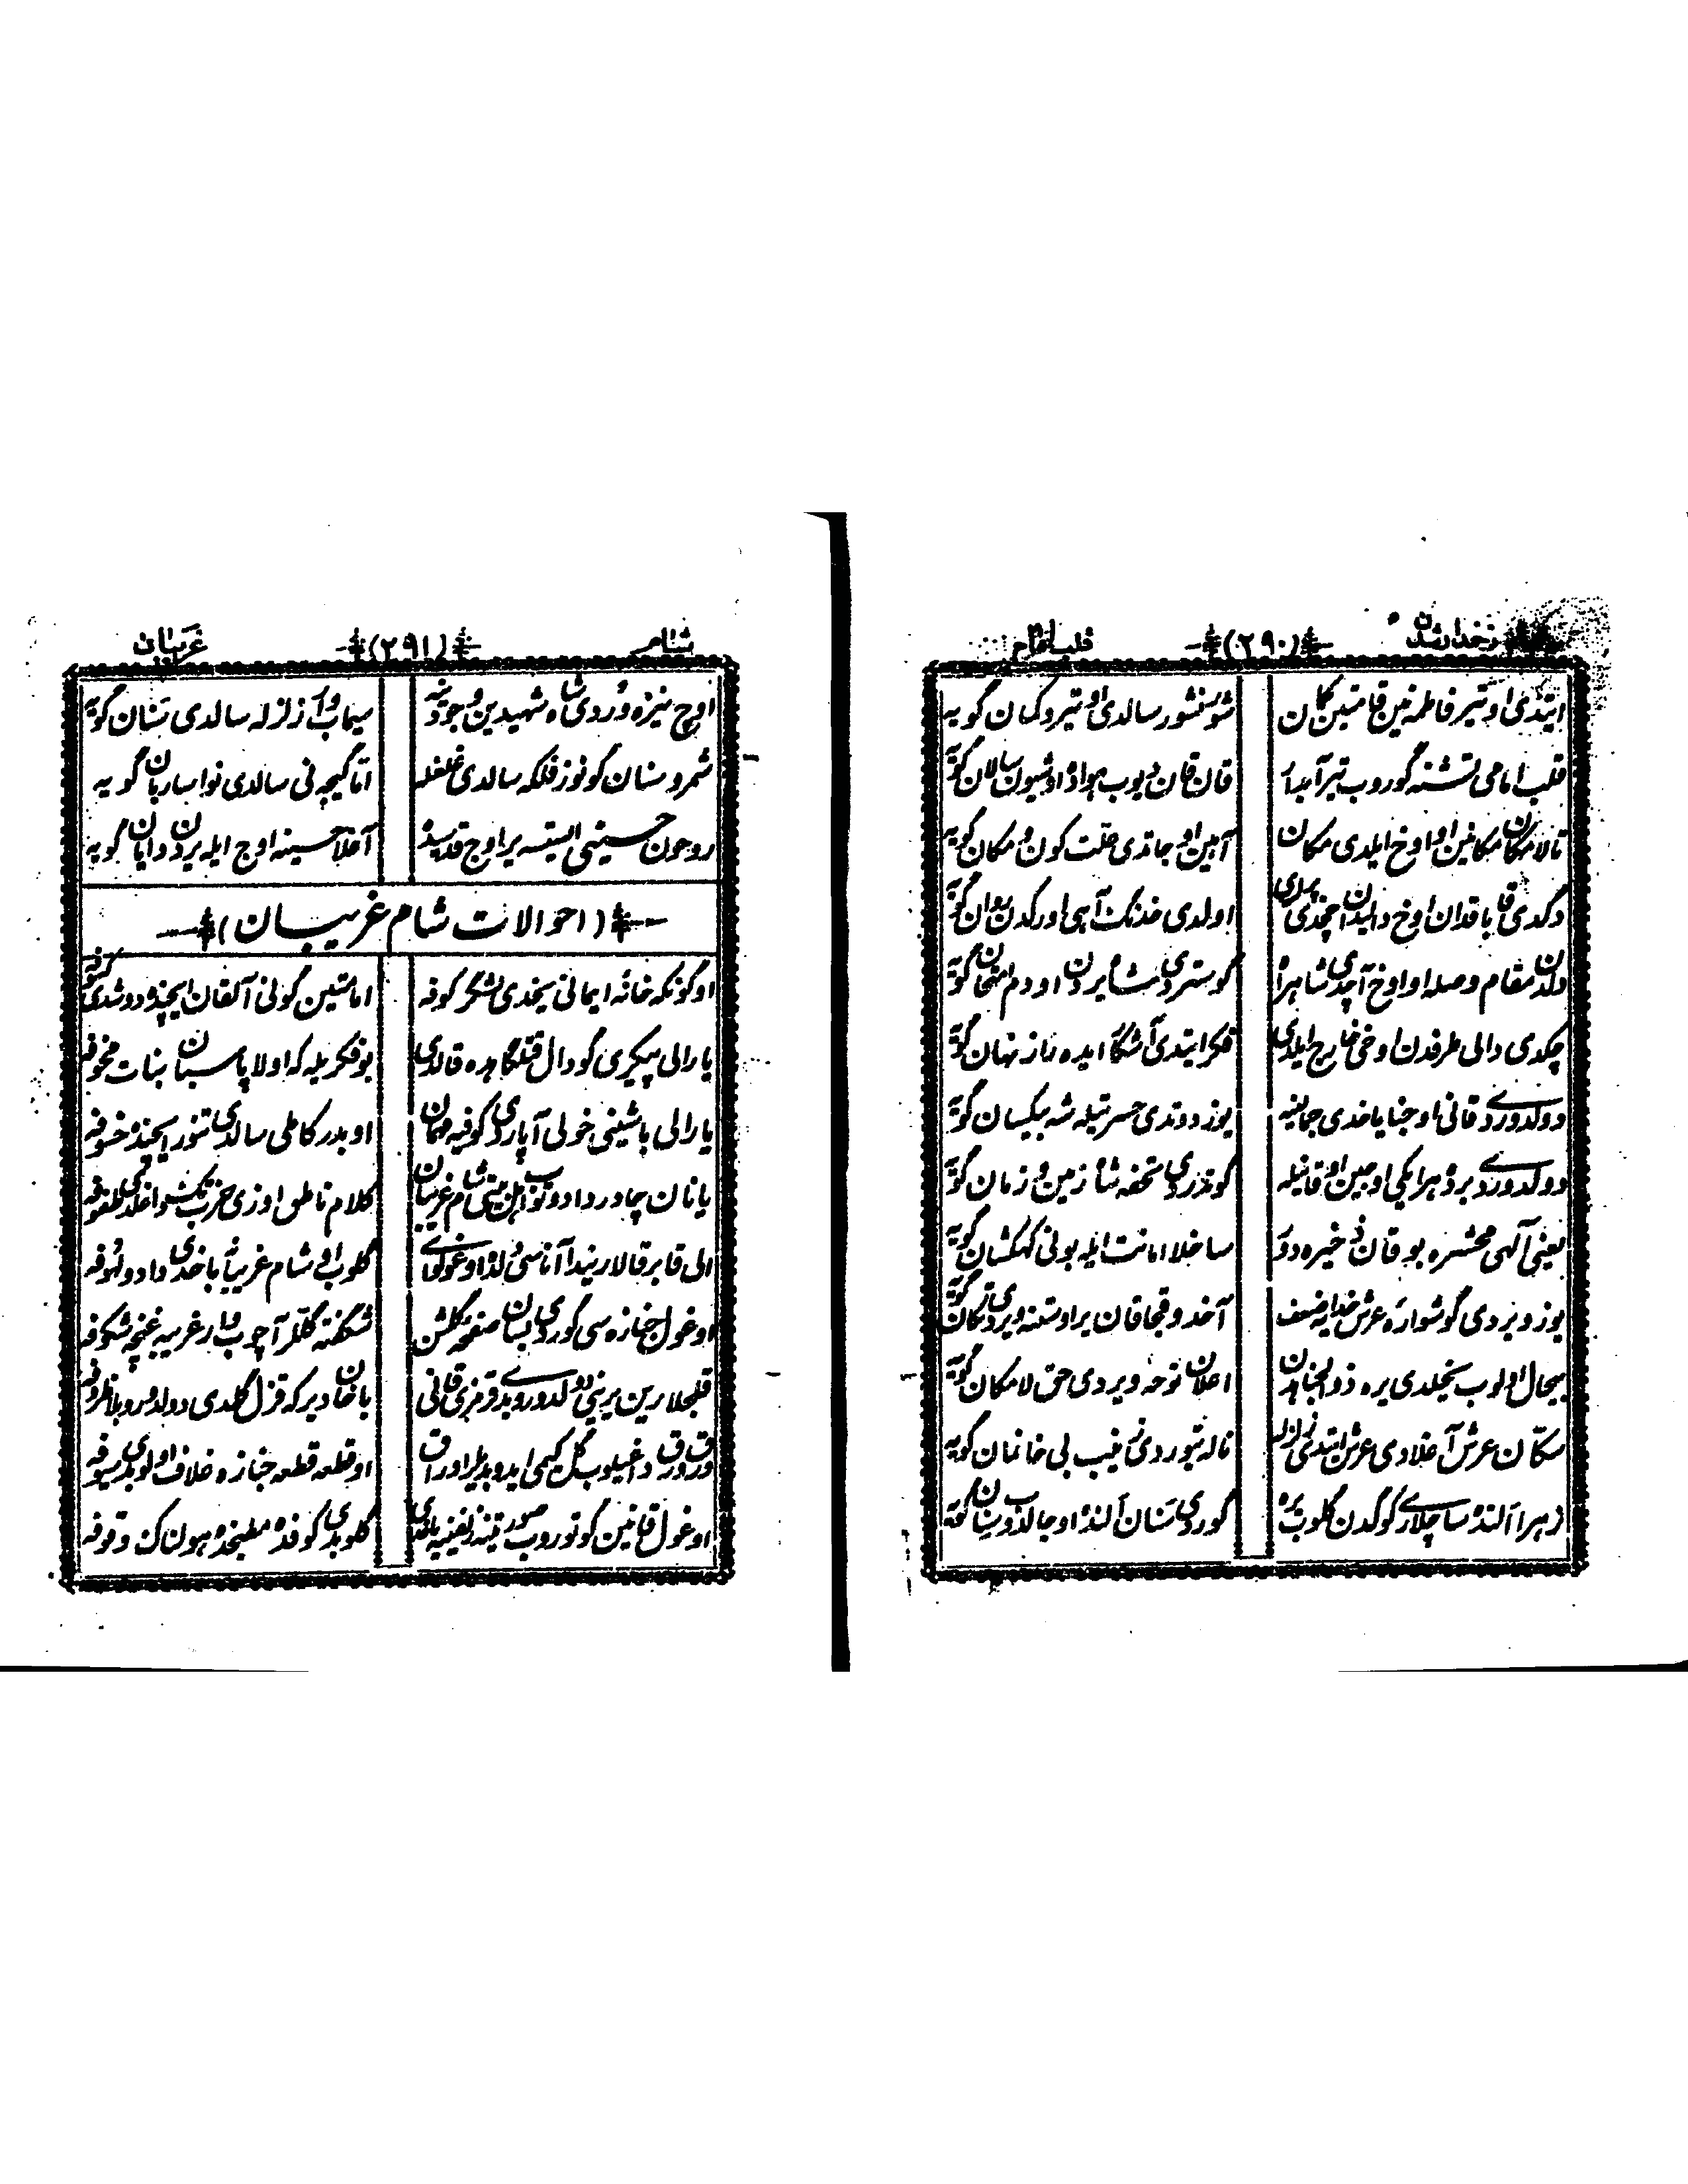 زخمدار شدن (۲۹۰) قلب امام
ایتدی او تیر فاطمه نین قامتین کمان شور نشور سالدی او تیر و کمان گویه
قلب امامی تشنه گوروب تیر آبدار قان قان دیوب هواده او شیون سالان گویه
تا لامکان مکانین او اوخ ایلدی مکان آهین او جاتدی علت کون و مکان گویه
دگدی قاباقدان اوخ دالیدان آچدی پرلری اولدی خدنگ آهی اورکدن روان گویه
دلدن مقام وصله او اوخ آچدی شاهراه گوستردی شاه یردن او دم امتحان گویه
چکدی دالی طرفدن اوخی خارج ایلدی فکر ایتدی آشکار ایده راز نهان گویه
دولدوردی قانی اوجنا یاخدی جمالینه یوز دوتدی حسرتیله شه بیکسان گویه
دولدوردی برده هر ایکی اوجین او قانیله گوندردی تحفه شاه زمین و زمان گویه
یعنی آلهی محشره بو قان ذخیره دور ساخلا امانت ایله بونی کهکشان گویه
یوز ویردی گوشواره عرش خدایه ضعف آخدوقجا قان یر اوستنه ویردی تکان گویه
بیحال اولوب یخیلدی یره ذوالجناحدن اعلان نوحه ویردی حق لامکان گویه
سکان عرش آغلادی عرش ایتدی زلزله ناله یتوردی زینب بی خانمان گویه
زهرا آلنده ساچلاری گوگدن گلوب یره گوردی سنان آلنده اوجالدوب سنان گویه
شام (۲۹۱) غریبان
اوج نیزه ده وردی شاه شهیدین وجودینه سیماب وار زلزله سالدی سنان گویه
شمر و سنان گونوز فلکه سالدی غلغله اما گیجه نی سالدی نوا ساربان گویه
روحون حسینی ایستسه یر اوج قدسیده آغلا حسینه اوج ایله یردن دایان گویه
(احوالات شام غریبان)
او گونکه خانه ایمانی یخدی لشگر کوفه امامتین گونی آلقان ایچنده دوشدی کسوفه
یارالی پیکری گودال قتلگاهده قالدی بو فکریله که اولا پاسبان بنات مخوفه
یارالی باشینی خولی آپاردی کوفیه مهمان او بدر کاملی سالدی تنور ایچنده خسوفه
یانان چادردا دوتوب اهل بیتی شام غریبان کلام ناطق اوزی حزب تک باغلدی ظروفه
الی قابرقالاریندا آناسی گلدی او غولوای گلوب او شام غریبانه یاخدی دا دولهوفه
اوغول جنازه سی گوردی بسان صفحه گلشن شگفته گللر آچوب وار غریبه غنچه شکوفه
قلجلارین یرینی دولدوروبدی قرمزی قانی باخان دیر که قزل گلدی دولدوروبلا ظروفه
ورق ورق داغیلوب گل کیمی ایدوبدیلر اوراق او قطعه قطعه جنازه غلاف اولوبدی سیوفه
اوغول قانین گوتوروب صورتینه زلفینه یاخدی گلوبدی کوفه ده مطبخده هولناک وقوفه